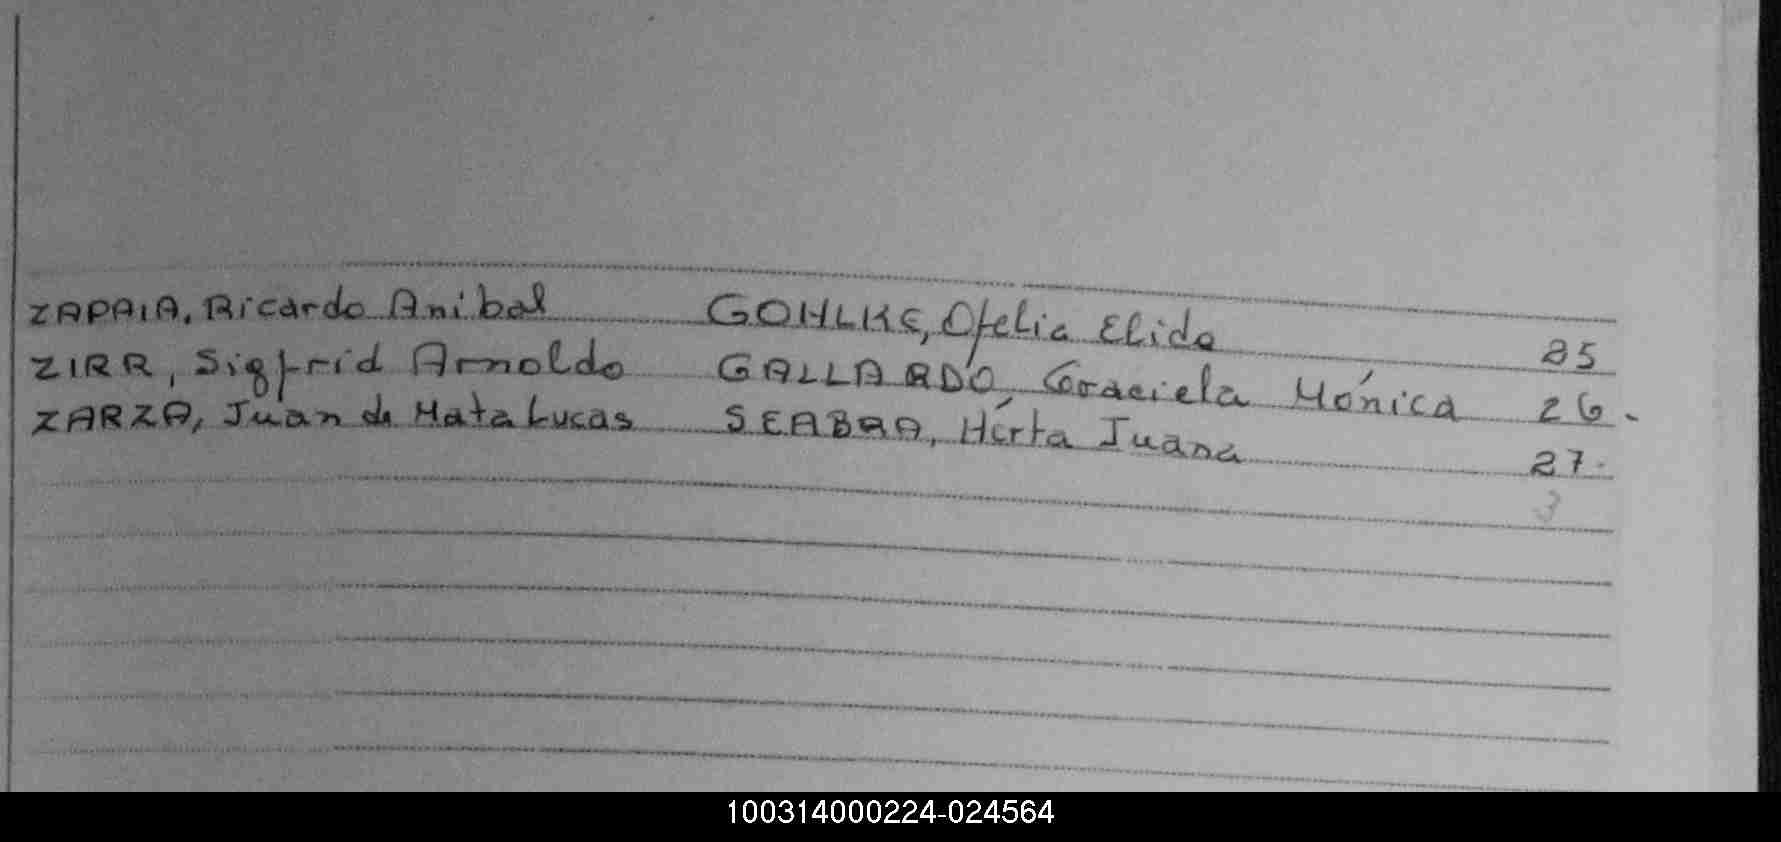 ZAPAIA, Ricardo Anibal GOHLKE, Ofelia Elida 25
ZIRR, Sigfrid Arnoldo GALLARDO, Graciela Mónica 26.
ZARZA, Juan de Mata Lucas SEABRA, Hirta Juana 27.
3
100314000224-024564